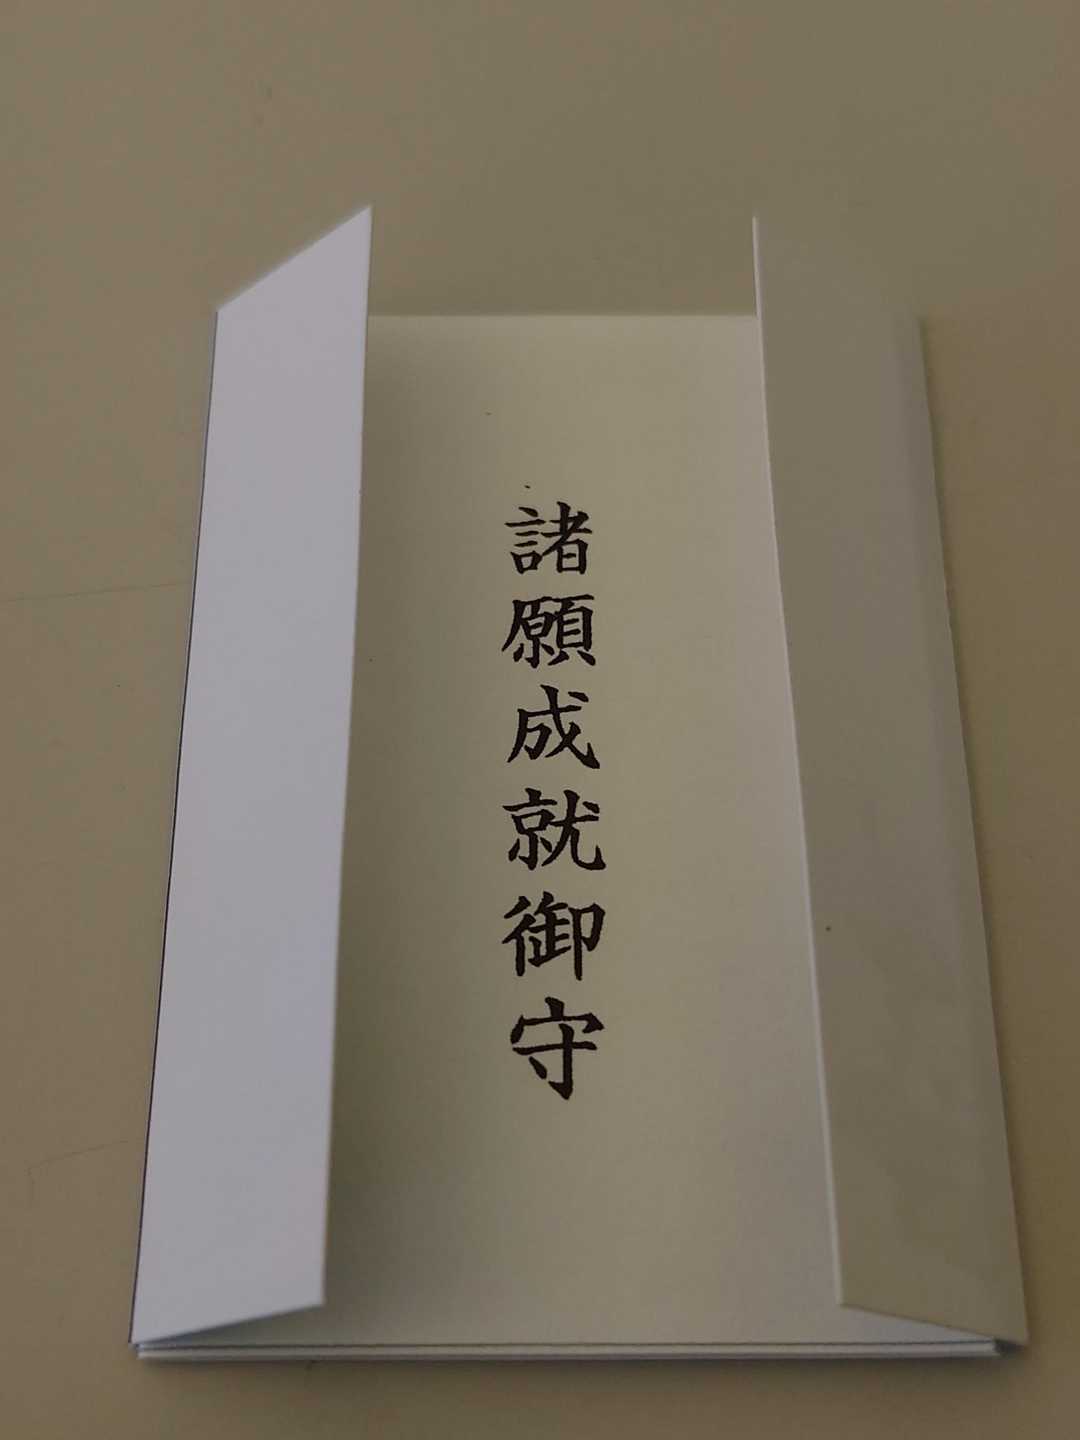 諸願成就御守